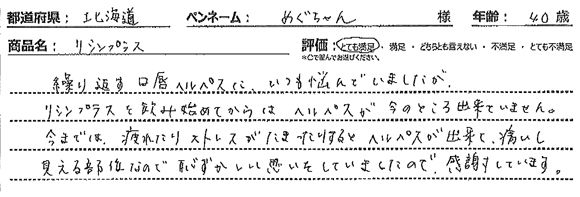 都道府県： 北海道 ペンネーム： めぐちゃん 様 年齢： 40 歳
商品名： リシンプラス 評価： とても満足 ・ 満足 ・ どちらとも言えない ・ 不満足 ・ とても不満足
*○で囲んでお選びください。
繰り返す口唇ヘルペスに、いつも悩んでいましたが、
リシンプラスを飲み始めてからは ヘルペスが 今のところ出来ていません。
今までは、疲れたり ストレスがたまったりすると ヘルペスが出来て、痛いし
見える部位なので 恥ずかしい思いをしていましたので、感謝しています。